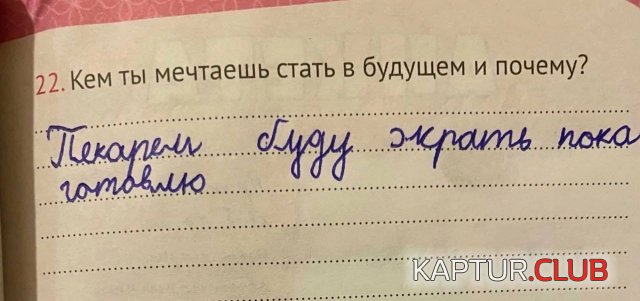 22. Кем ты мечтаешь стать в будущем и почему?
Пекарем буду жрать пока
готовлю
KAPTUR.CLUB